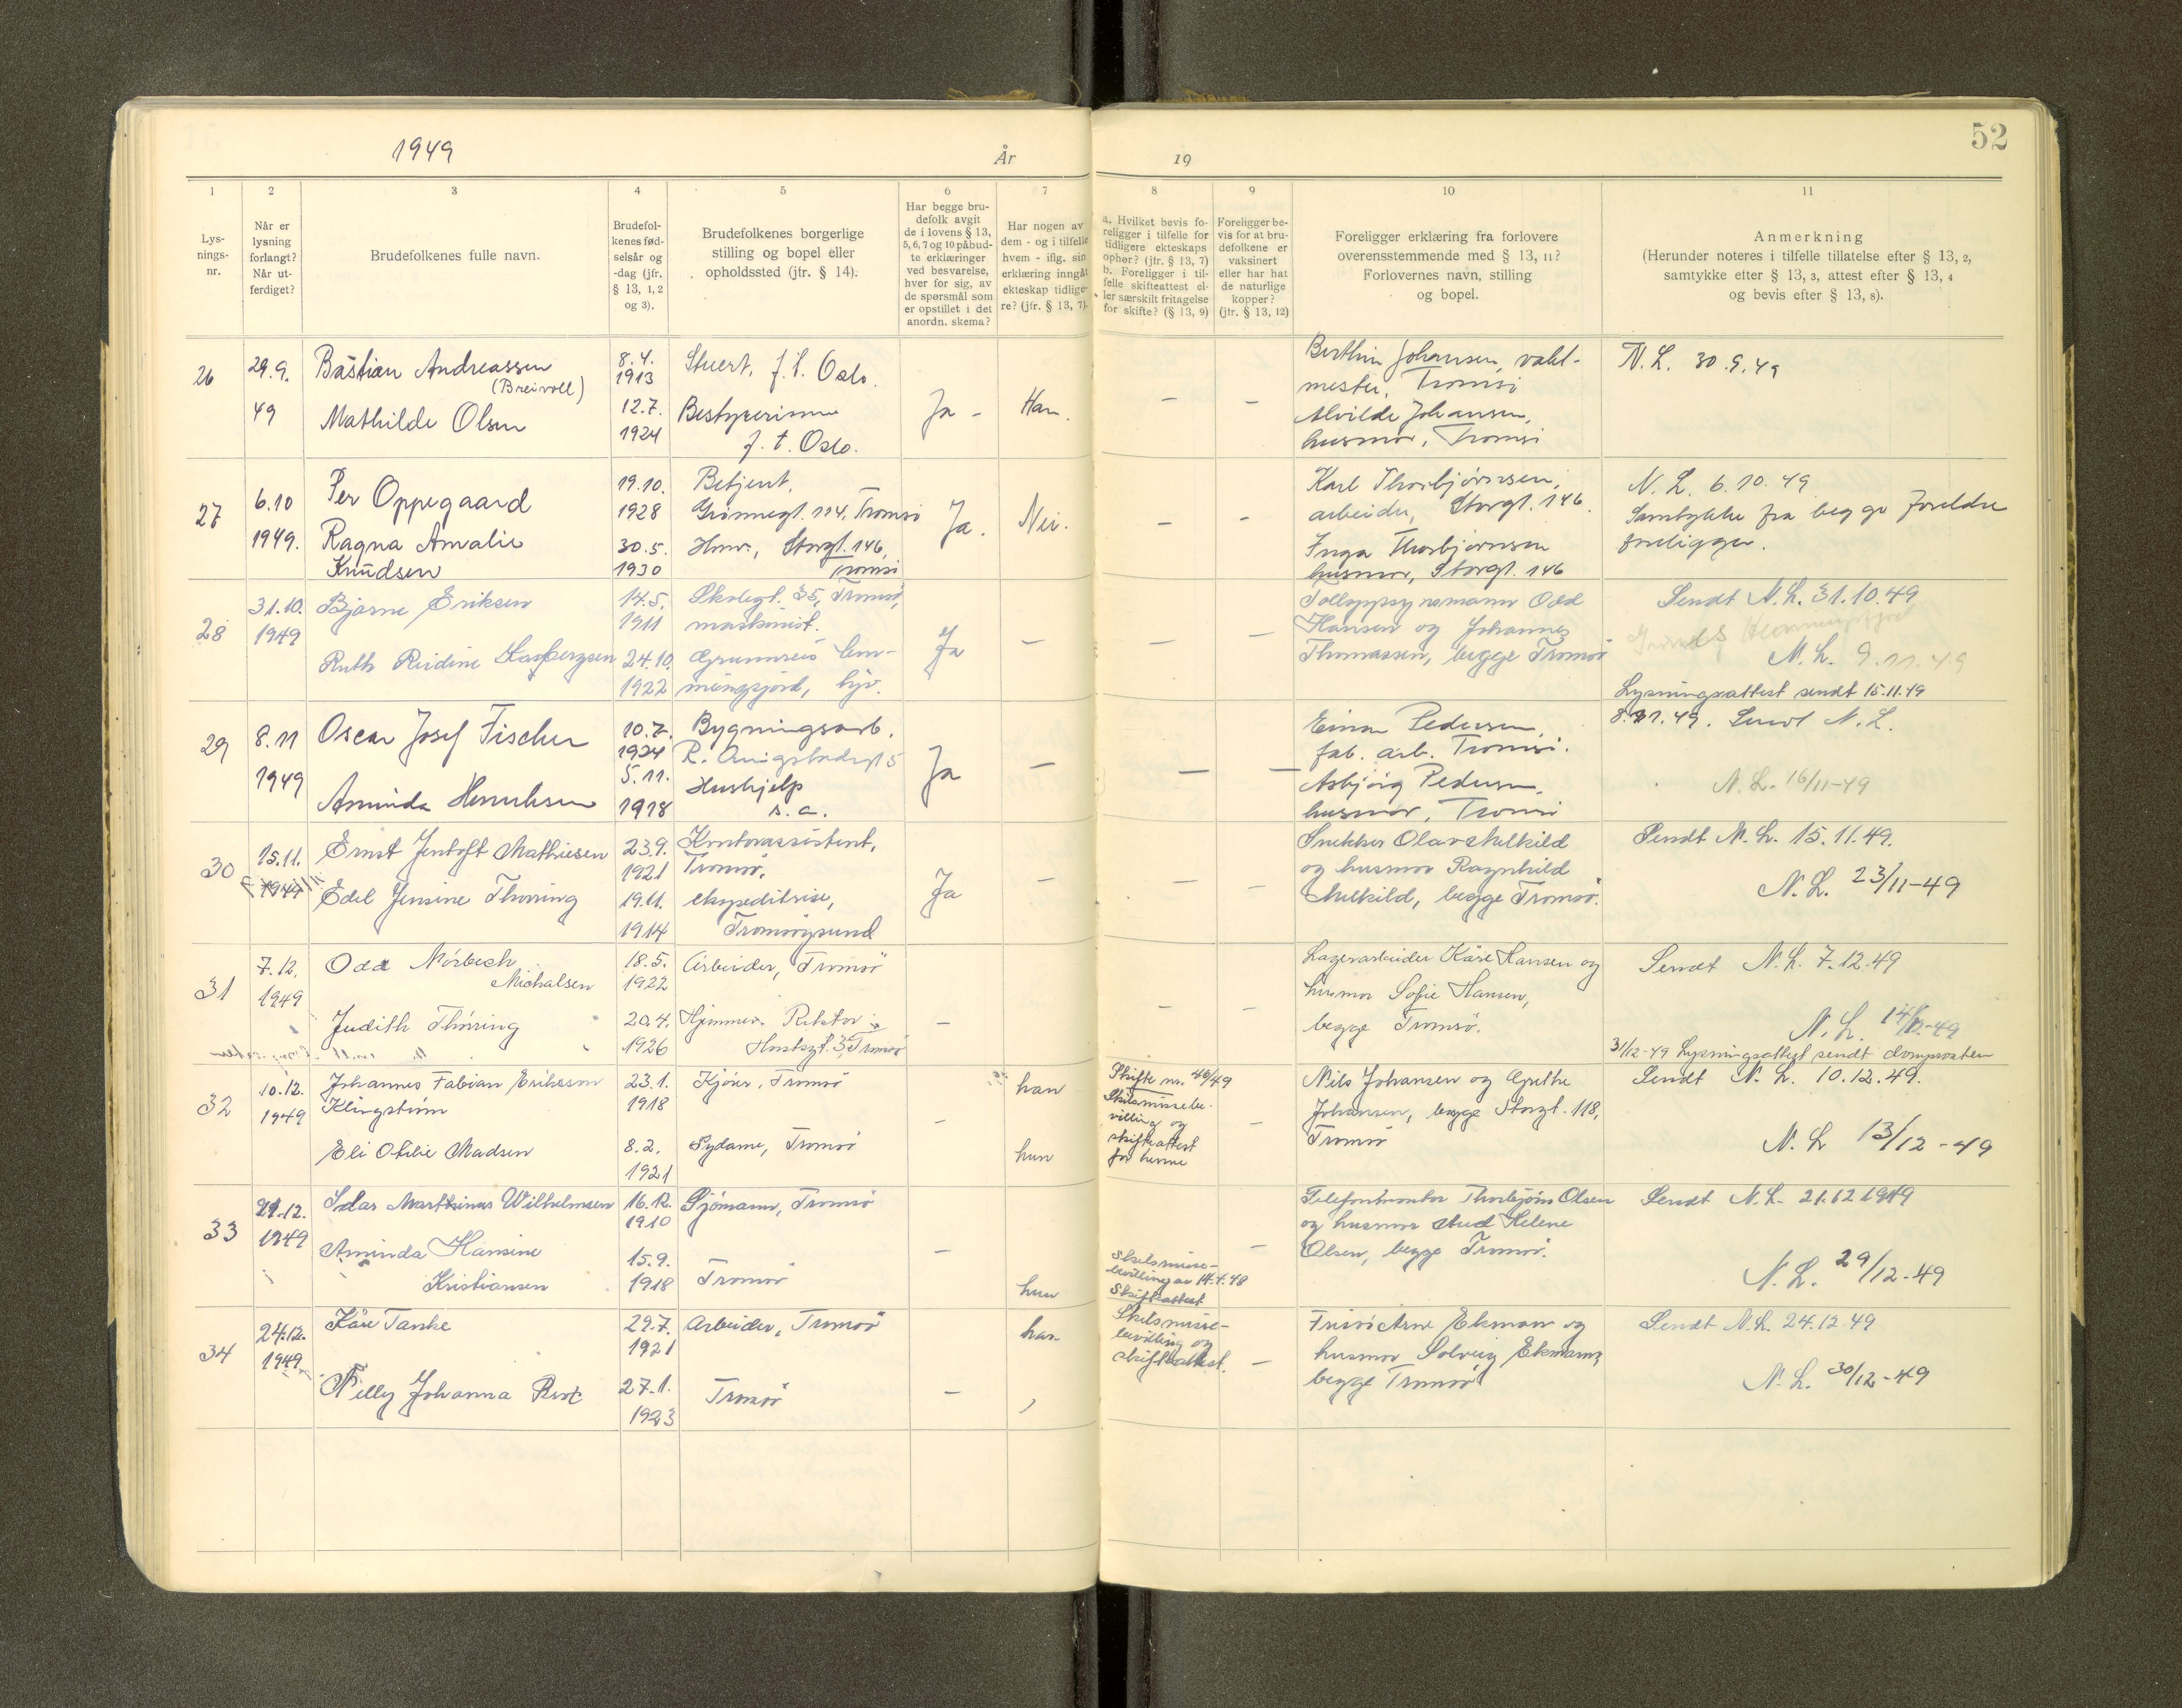 1949
År
19
52
1
2
3
4
5
6
7
8
9
10
11
Lys-
nings-
nr.
Når er
lysning
forlangt?
Når ut-
ferdiget?
Brudefolkenes fulle navn.
Brudefol-
kenes fød-
selsår og
-dag (jfr.
§ 13, 1, 2
og 3).
Brudefolkenes borgerlige
stilling og bopel eller
opholdssted (jfr. § 14).
Har begge bru-
defolk avgit
de i lovens § 13,
5, 6, 7 og 10 påbud-
te erklæringer
ved besvarelse,
hver for sig, av
de spørsmål som
er opstillet i det
anordn. skema?
Har nogen av
dem - og i tilfelle
hvem - iflg. sin
erklæring inngått
ekteskap tidlige-
re? (jfr. § 13, 7).
a. Hvilket bevis fo-
religger i tilfelle for
tidligere ekteskaps
ophør? (jfr. § 13, 7)
b. Foreligger i til-
felle skifteattest el-
ler særskilt fritagelse
for skifte? (§ 13, 9)
Foreligger be-
vis for at bru-
defolkene er
vaksinert
eller har hat
de naturlige
kopper?
(jfr. § 13, 12)
Foreligger erklæring fra forlovere
overensstemmende med § 13, 11?
Forlovernes navn, stilling
og bopel.
Anmerkning
(Herunder noteres i tilfelle tillatelse efter § 13, 2,
samtykke efter § 13, 3, attest efter § 13, 4
og bevis efter § 13, 8).
26
29.9.
49
Bastian Andreassen
(Breivoll)
Mathilde Olsen
8.4.
1913
12.7.
1924
Stuert, f. t. Oslo.
Bestyrerinne
f. t. Oslo.
Ja -
Han.
-
-
Berthin Johansen, vakt-
mester, Tromsø
Alvilde Johansen,
husmor, Tromsø
N. L. 30.9.49
27
6.10
1949.
Per Oppegaard
Ragna Amalie
Knudsen
19.10.
1928
30.5.
1930
Betjent,
Grønnegt. 114, Tromsø
Hmv., Storgt. 146,
Tromsø
Ja.
Nei.
-
-
Karl Thorbjørnsen,
arbeider, Storgt. 146.
Inga Thorbjørnsen
husmor, Storgt. 146
N. L. 6.10.49
Samtykke fra begge foreldre
foreligger.
28
31.10.
1949
Bjarne Eriksen
Ruth Reidine Kaspersen
14.5.
1911
24.10.
1922
Skolegt. 35, Tromsø,
maskinist.
Grunnreis lem-
mingsjord, hjv.
Ja
-
-
-
Tolloppsynsmann Odd
Hansen og Johannes
Thomassen, begge Tromsø
Sendt N. L. 31.10.49
N. L. 9.11.49
Lysningsattest sendt 15.11.49
29
8.11
1949
Oscar Josef Fischer
Aminda Henriksen
10.7.
1924
5.11.
1918
Bygningsarb.
Hushjelp
s. a.
Ja
-
-
-
Einar Pedersen,
fab. arb. Tromsø.
Asbjørg Pedersen,
husmor, Tromsø
8.11.49. Sendt N. L.
N. L. 16/11-49
30
15.11.
1949
Ernst Jentoft Mathiesen
Edel Jensine Thorring
23.9.
1921
19.11.
1914
Kontorassistent,
Tromsø,
ekspeditrise,
Tromsøysund
Ja
-
-
-
Snekker Olav Melkild
og husmor Ragnhild
Melkild, begge Tromsø.
Sendt N. L. 15.11.49.
N. L. 23/11-49
31
7.12.
1949
Odd Mörbech
Michalsen
Judith Thörring
18.5.
1922
20.4.
1926
Arbeider, Tromsø
Hjemmev. Rektor
Horstsgt. 3, Tromsø
-
-
-
Lagerarbeider Kåre Hansen og
husmor Sofie Hansen,
begge Tromsø.
Sendt N. L. 7.12.49
N. L. 14/12-49
31/12-49 Lysningsattest sendt domprosten
32
10.12.
1949
Johannes Fabian Eriksson
Klingström
Eli Otilie Madsen
23.1.
1918
8.2.
1921
Kjører, Tromsø
Sydame, Tromsø
-
han
hun
Skifte nr. 46/49
Skilsmissebe-
villing og
skifteattest
for henne
-
Nils Johansen og Grethe
Johansen, begge Storgt. 118,
Tromsø
Sendt N. L. 10.12.49.
N. L 13/12-49
33
21.12.
1949
Idar Marthinus Wilhelmsen
Aminda Hansine
Kristiansen
16.12.
1910
15.9.
1918
Sjömann, Tromsø
Tromsø
-
hun
Skilsmisse-
bevilling av 14.4.48
Skifteattest
-
Telefonmontør Thorbjørn Olsen
og husmor Aud Helene
Olsen, begge Tromsø.
Sendt N. L. 21.12.1949
N. L. 29/12-49
34
24.12.
1949
Kåre Tanke
Nelly Johanna Rist
29.7.
1921
27.1.
1923
Arbeider, Tromsø
Tromsø
-
han
Skilsmisse-
bevilling og
skifteattest.
-
Frisør Arne Ekmann og
husmor Solveig Ekmann,
begge Tromsø
Sendt N. L. 24.12.49
N. L. 30/12-49